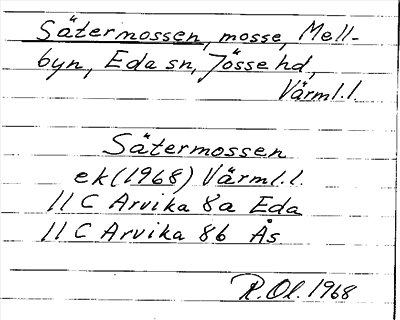 Sätermossen, mosse, Mell-
byn, Eda sn, Jösse hd,
Värml.l.
Sätermossen
ek (1968) Värml.l.
11 C Arvika 8a Eda
11 C Arvika 8b Ås
R.Ol. 1968